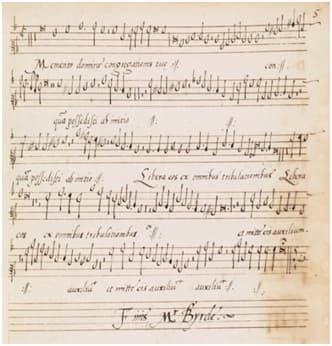 5
Memento domine congregationis tue :||: con :||:
quã possedisti ab initio :||:
quã possedisti ab initio :||: Libera eos ex omnibus tribulationibus Libera
eos ex omnibus tribulationibus :||: et mitte eis auxilium
auxiliũ et mitte eis auxiliũ auxiliũ :||:
Finis Mr Byrde